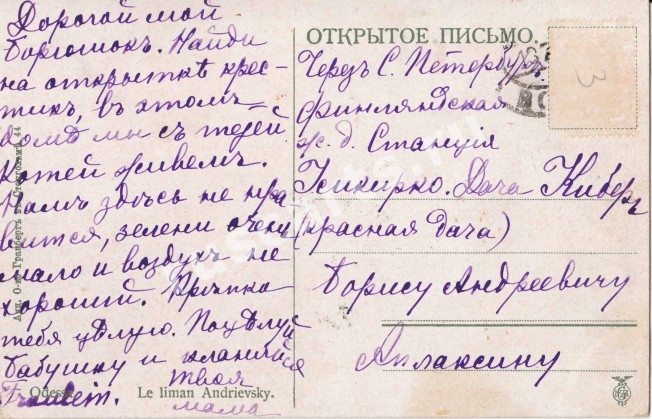 Дорогой мой
Борюшокъ. Найди
на открыткѣ крес-
тикъ, въ этомъ
домѣ мы съ тетей
Катей живемъ.
Намъ здѣсь не нра-
вится, зелени очень
мало и воздухъ не
хорошій. Крѣпко
тебя цѣлую. Поцѣлуй
Бабушку и кланяйся
Fräulein. твоя
мама
Odessa. Le liman Andrievsky.
Акц. О-во Гранбергъ въ Стокгольмѣ 44
ОТКРЫТОЕ ПИСЬМО.
Черезъ С. Петербургъ
Финляндская
ж. д. Станція
Усикирко. Дача Киберъ
(красная дача)
Борису Андреевичу
Аплаксину
3